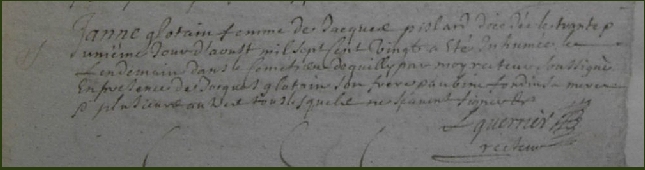 Janne glotain femme de Jacque piolard décédée le trante p
unième Jour d'aoust mil sept sent Vingt a Eté Inhumée le
Lendemain dans le simetiere de quilly par moy recteur soussigné
En presence de Jacques glotain son frère
plusieurs autres tous lesquelle ne sçavent signer
L guerrier
recteur